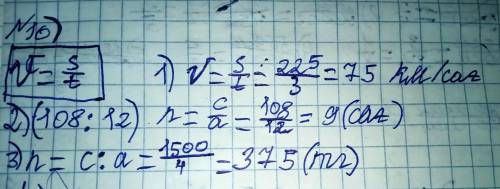 №16)
V = s/t 1) V = s/t = 225/3 = 75 км/саг
2) (108:12) n = c/a = 108/12 = 9 (саг)
3) n = c:a = 1500/4 = 375 (тг)